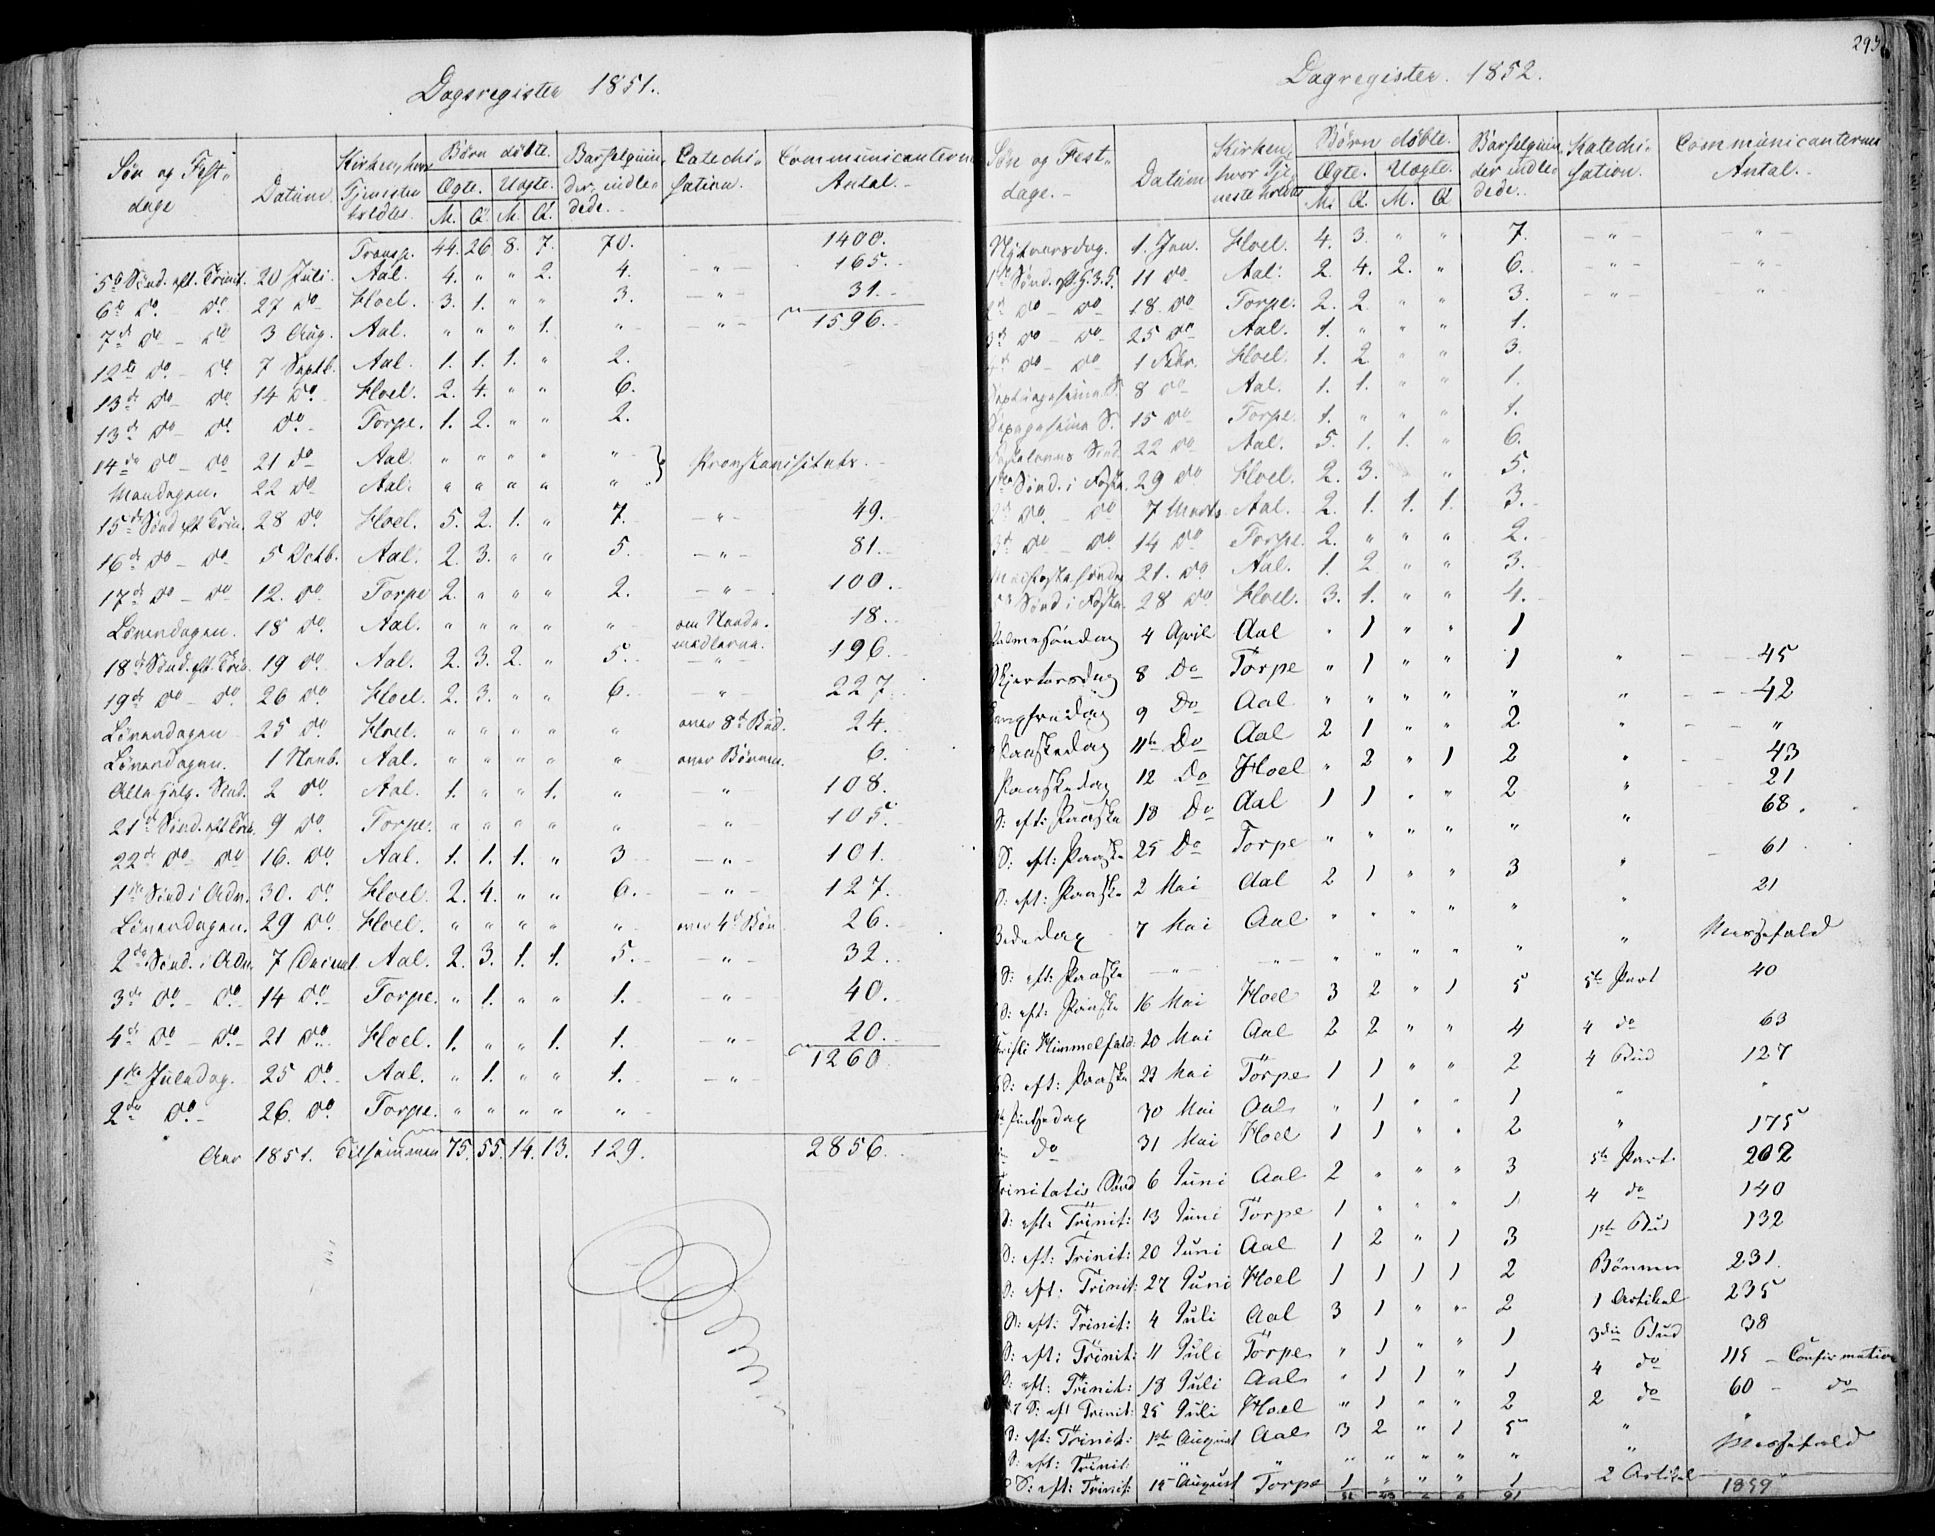 Dagsregister 1851.
Søn og Fest-dage | Datum. | Kirken, hvor Tjenesten holdtes. | Børn døbte. Ægte. M. Q. Uægte. M. Q. | Barselqvinder indledede. | Catechisation. | Communicanternes Antal.
Transp. 44. 26 8. 7. 70. 1400.
5te Sønd. eft. Trinit. 20 Juli. Aal. 4. " " 2. 4. - " - 165.
6te do do 27 do Hoel. 3. 1. " " 3. - " - 31.
7de do - do 3 Aug. Aal. " " " 1. " - " - 1596.
12te do - do 7 Septb. Aal. 1. 1. 1. " 2.
13de do - do 14 do Hoel. 2. 4. " " 6.
13de do - do do Torpe. 1. 2. " " 2.
14de do - do 21 do Aal. " " " " "
Mandagen. 22 do Aal. " " " " "
15de Sønd eft Trin. 28 do Hoel. 5. 2. 1. " 7. - " - 49.
16de do - do 5 Octb. Aal. 2. 3. " " 5. - " - 81.
17de do - do 12. do Torpe 2. " " " 2. - " - 100.
Løverdagen. 18 do. Aal. " " " " " om Naademidlerne. 18.
18de Sønd. eft. Trin. 19 do. Aal. 2. 3. 2. " 5. - " - 196.
19de do - do. 26 do. Hoel. 2. 3. " " 6. - " - 227.
Løverdagen 25 do. Hoel. " " " " " over 8de Bud. 24.
Løverdagen. 1 Novb. Aal. " " " " " over Bønnen. 6.
Alle Helg. Sønd. 2 do. Aal. 1. " " 1. " " 108.
21de Sønd. eft Trin. 9 do. Torpe. " " " " " - " - 105.
22de do do 16. do. Aal. 1. 1. 1. " 3 - " - 101.
1ste Sønd i Adv. 30. do. Hoel. 2. 4. " " 6. - " - 127.
Løverdagen. 29 do. Hoel. " " " " " over 4de Bøn. 26.
2den Sønd. i Adv. 7 Decembr Aal. 2. 3. 1. 1. 5. - " - 32.
3de do - do 14 do Torpe. " 1. " " 1. - " - 40.
4de do - do. 21 do. Hoel. 1. " " 1. 1. - " - 20.
1260
1ste Juledag. 25 do. Aal. " 1. " " 1. - " -
2den do. 26. do. Torpe. " " " " "
Aar 1851. Tilsammen 75. 55. 14. 13. 129. 2856.
293
Dagregister. 1852.
Søn og Fest-dage. | Datum | Kirken, hvor Tjeneste holdtes | Børn døbte. Ægte. M. Q. Uægte. M. Q | Barselqvinder indledede. | Katechisation. | Communicanternes Antal.
Nytaarsdag. 1. Jan. Hoel. 4. 3. " " 7. - " - - " -
1ste Sønd. eft. H.3.K. 11 do Aal. 2. 4. 2. " 6. - " - - " -
2de do - do 18. do Torpe. 2. 2. " " 3. - " - "
3de do - do. 25 do Aal. 1. " " " 1.
4de do - do 1 Febr. Hoel. 1. 2 " " 3.
Septuagesima S. 8 do Aal. 1. 1. " " 1.
Sexagesima S. 15 do Torpe. 1. " " " 1.
Fastelavns Sønd. 22 do Aal. 5. 1. 1. " 6.
1ste Sønd. i Faste. 29 do Hoel. 2. 3. " 5.
2de do. - do 7 Marts Aal. 2. 1. 1. 1. 3.
3de do - do. 14 do Torpe. 2. " " " 2.
Midfastesøndag 21. do. Aal. 1. 2 " " 3.
5te Sønd i Faste. 28 do. Hoel. 3. 1. " " 4.
Palmesøndag 4 April Aal " 1 " " 1
Skjertorsdag 8 Do Torpe " 1 " " 1 " 45
Langfredag 9 Do Aal " " " " " " 42
Paaskedag 11te Do Aal 2 1 " " 2 " "
Paaskedag 12 Do Hoel " 2 " 1 2 " 43
S: eft: Paaske 18 Do Aal 1 1 " " 2 " 21
S: eft: Paaske 25 Do Torpe " " " " " " 68
S: eft: Paaske 2 Mai Aal 2 1 " " 3 " 61
Bededag 7 Mai Aal " " " " " " 21
S: eft: Paaske - " - - " - " " " " " " Messefald
S: eft: Paaske 16 Mai Hoel 3 2 " 1 5 5te Part 40
Christi Himmelfald: 20 Mai Aal 2 2 " " 4 4 do 63
S: eft: Paaske 23 Mai Torpe 1 1 " " 2 4 Bud 127
Pintsedag 30 Mai Aal " 1 " " 1 " "
do 31 Mai Hoel 1 1 " " 2 " 175
Trinitatis Sønd 6 Juni Aal 2 " " " 3 5te Part. 202
S: eft: Trinit: 13 Juni Torpe 1 " " " 1 4 do 140
S: eft: Trinit: 20 Juni Aal 1 2 " 1 3 1ste Bud 132
S: eft: Trinit: 27 Juni Hoel 1 1 1 1 2 Bønnen 231
S: eft: Trinit: 4 Juli Aal 3 1 " " 2 1 Artikel 235
S: eft: Trinit: 11 Juli Torpe " 1 " " 1 3die Bud 38
S: eft: Trinit: 18 Juli Aal " 1 1 " 1 4 do 115 - Confirmation
S: eft Trinit: 25 Juli Hoel " 1 " " 2 2 do 60 - do
S: eft: Trinit: 1ste August Aal 3 2 " 1 5 " "
S: eft: Trinit: " " " " " " " " Messefald
S: eft: Trinit: 15 August Torpe 1 " " " 1 2 Artikel "
91 1859